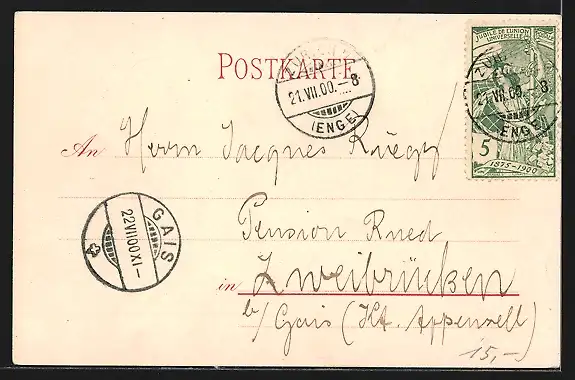 POSTKARTE
JUBILÉ DE L'UNION
UNIVERSELLE POSTALE
ZÜRICH
21.VII.00.–8
(ENGE)
ZÜRICH
21.VII.00.–8
(ENGE)
5
1875–1900
An Herrn Jacques Rüegg
GAIS
22 VII 00 XI–
Pension Rued
in Zweibrücken
b/Gais (Kt. Appenzell)
15,–